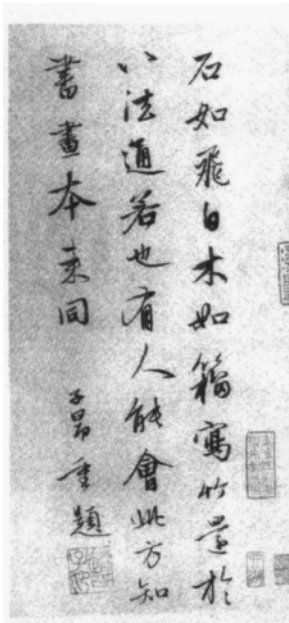 石如飛白木如籀寫竹還於
八法通若也有人能會此方知
書畫本來同
子昂重題